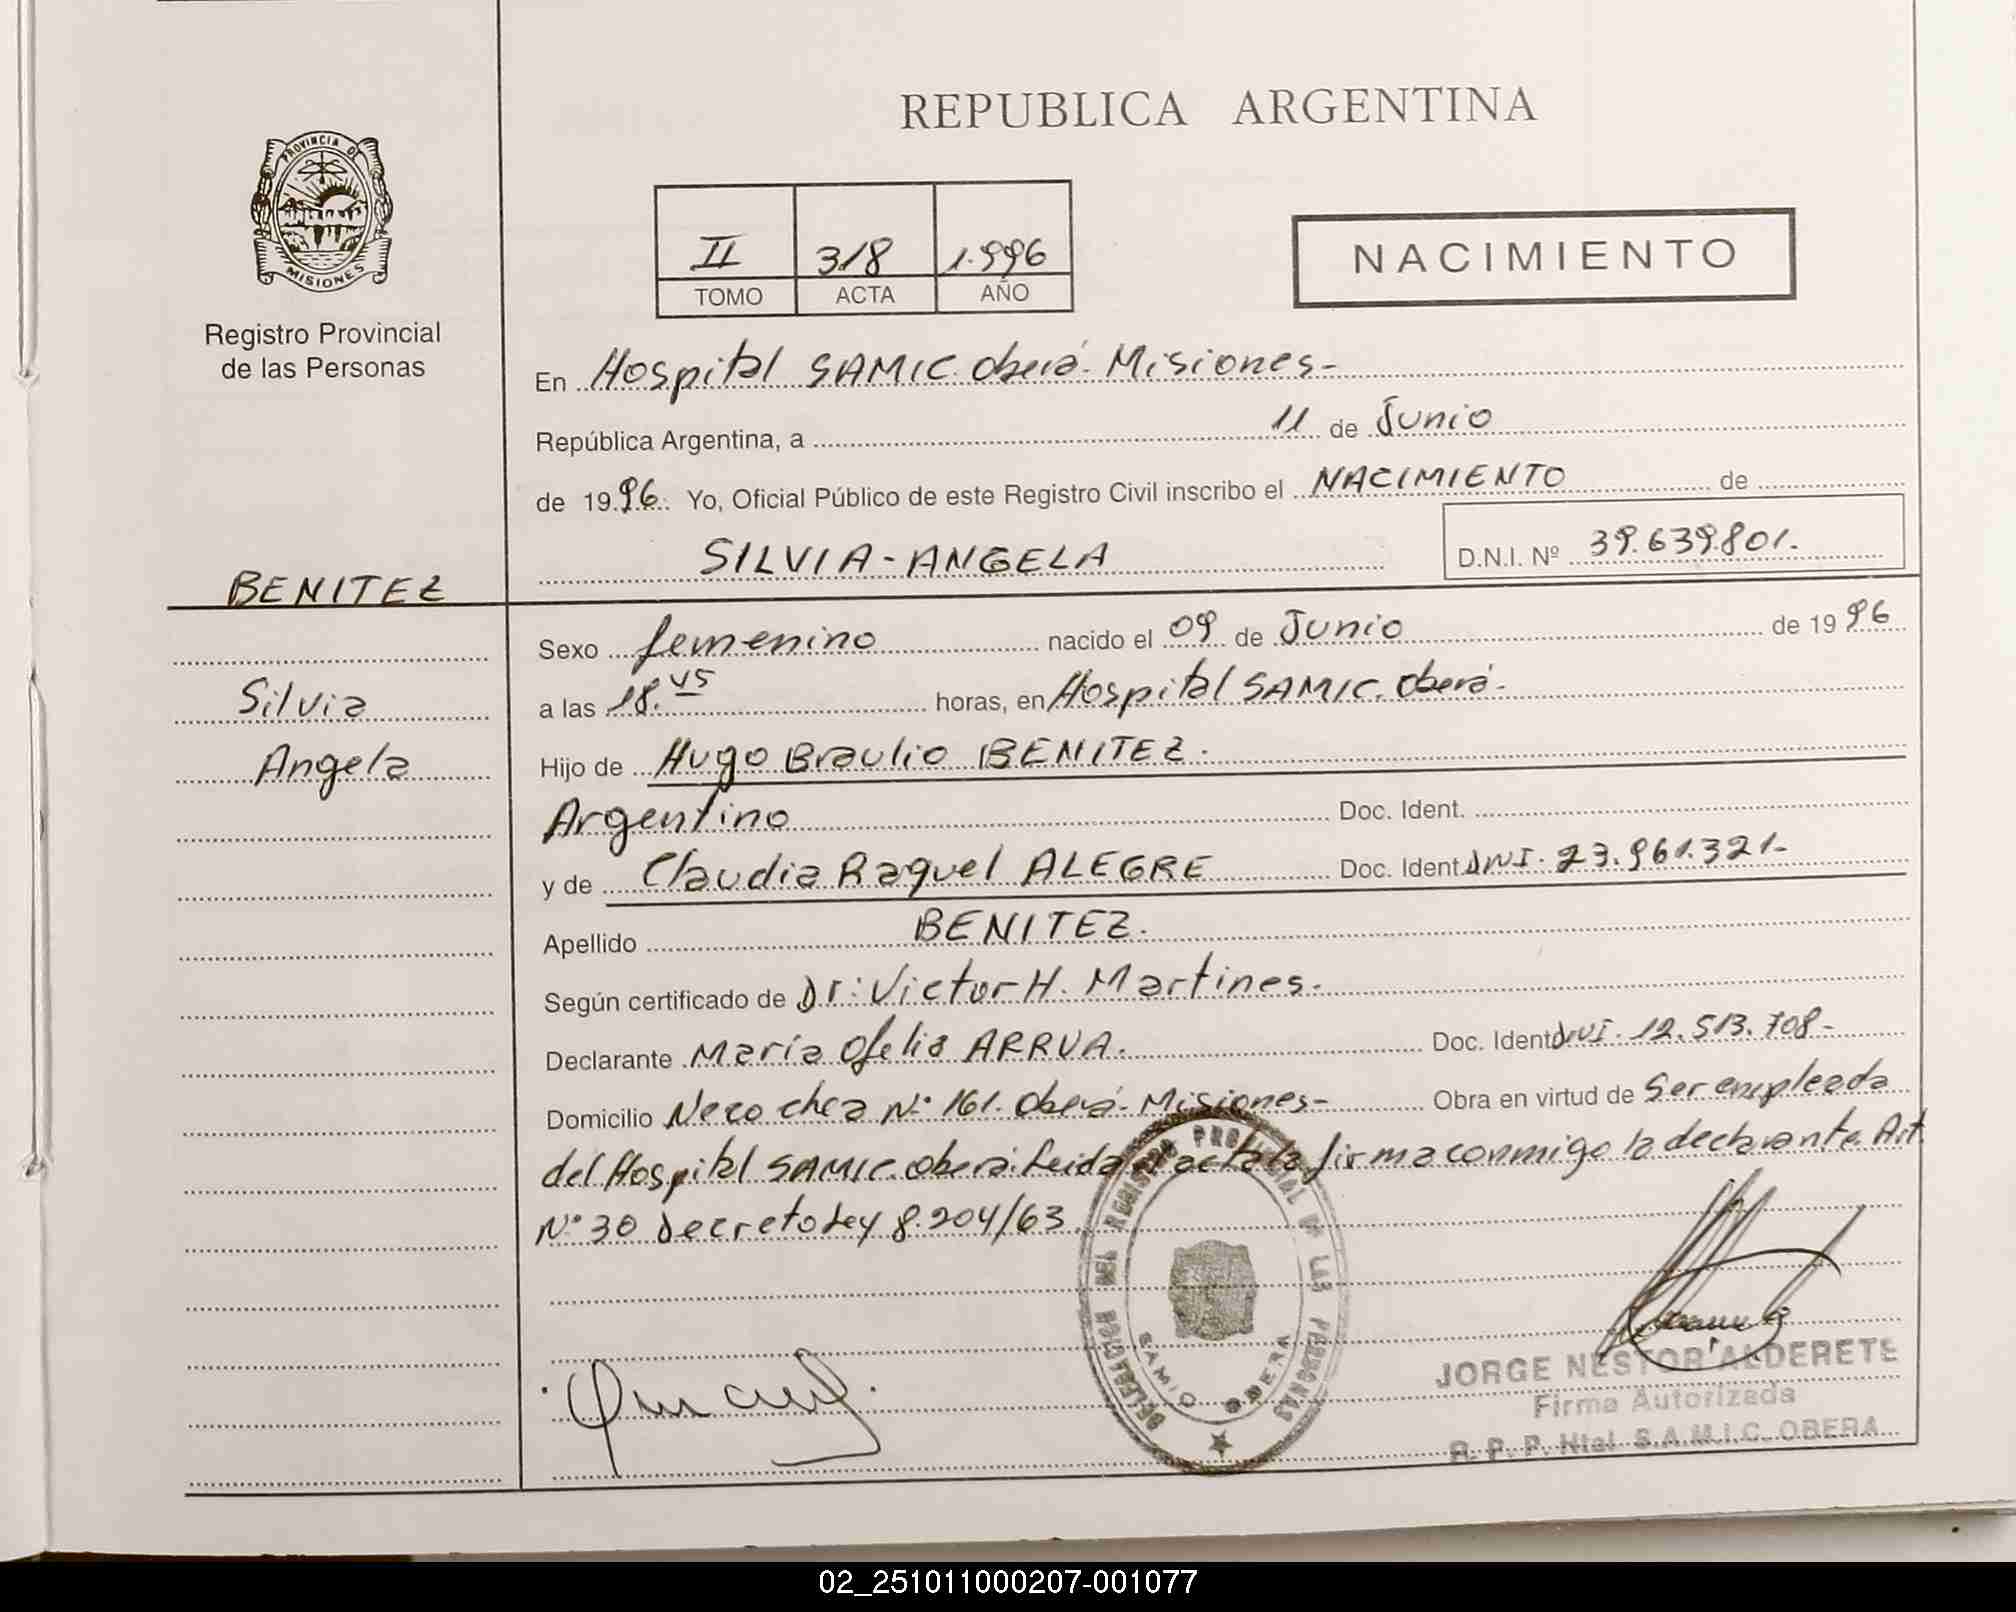 REPUBLICA ARGENTINA
PROVINCIA DE
MISIONES
Registro Provincial
de las Personas
II 318 1.996
TOMO ACTA AÑO
NACIMIENTO
En Hospital SAMIC. Oberá. Misiones-
República Argentina, a 11 de Junio
de 1996. Yo, Oficial Público de este Registro Civil inscribo el NACIMIENTO de
SILVIA-ANGELA
D.N.I. Nº 39.639.801.
BENITEZ
Silvia
Angela
Sexo femenino nacido el 09 de Junio de 1996
a las 18.45 horas, en Hospital SAMIC. Oberá-
Hijo de Hugo Braulio BENITEZ.
Argentino Doc. Ident.
y de Claudia Raquel ALEGRE Doc. Ident DNI. 23.961.321-
Apellido BENITEZ.
Según certificado de Dr: Victor H. Martines.
Declarante María Ofelia ARRUA. Doc. Ident DNI. 12.513.708-
Domicilio Necochea Nº 161. Oberá- Misiones- Obra en virtud de Ser empleada
del Hospital SAMIC. Oberá. Leida el acta la firma conmigo la declarante. Art.
Nº 30 Decreto Ley 8.204/63
DELEGACION DEL REGISTRO PROVINCIAL DE LAS PERSONAS
SAMIC OBERA
JORGE NESTOR ALDERETE
Firma Autorizada
R. P. P. Htal S.A.M.I.C. OBERA
02_251011000207-001077